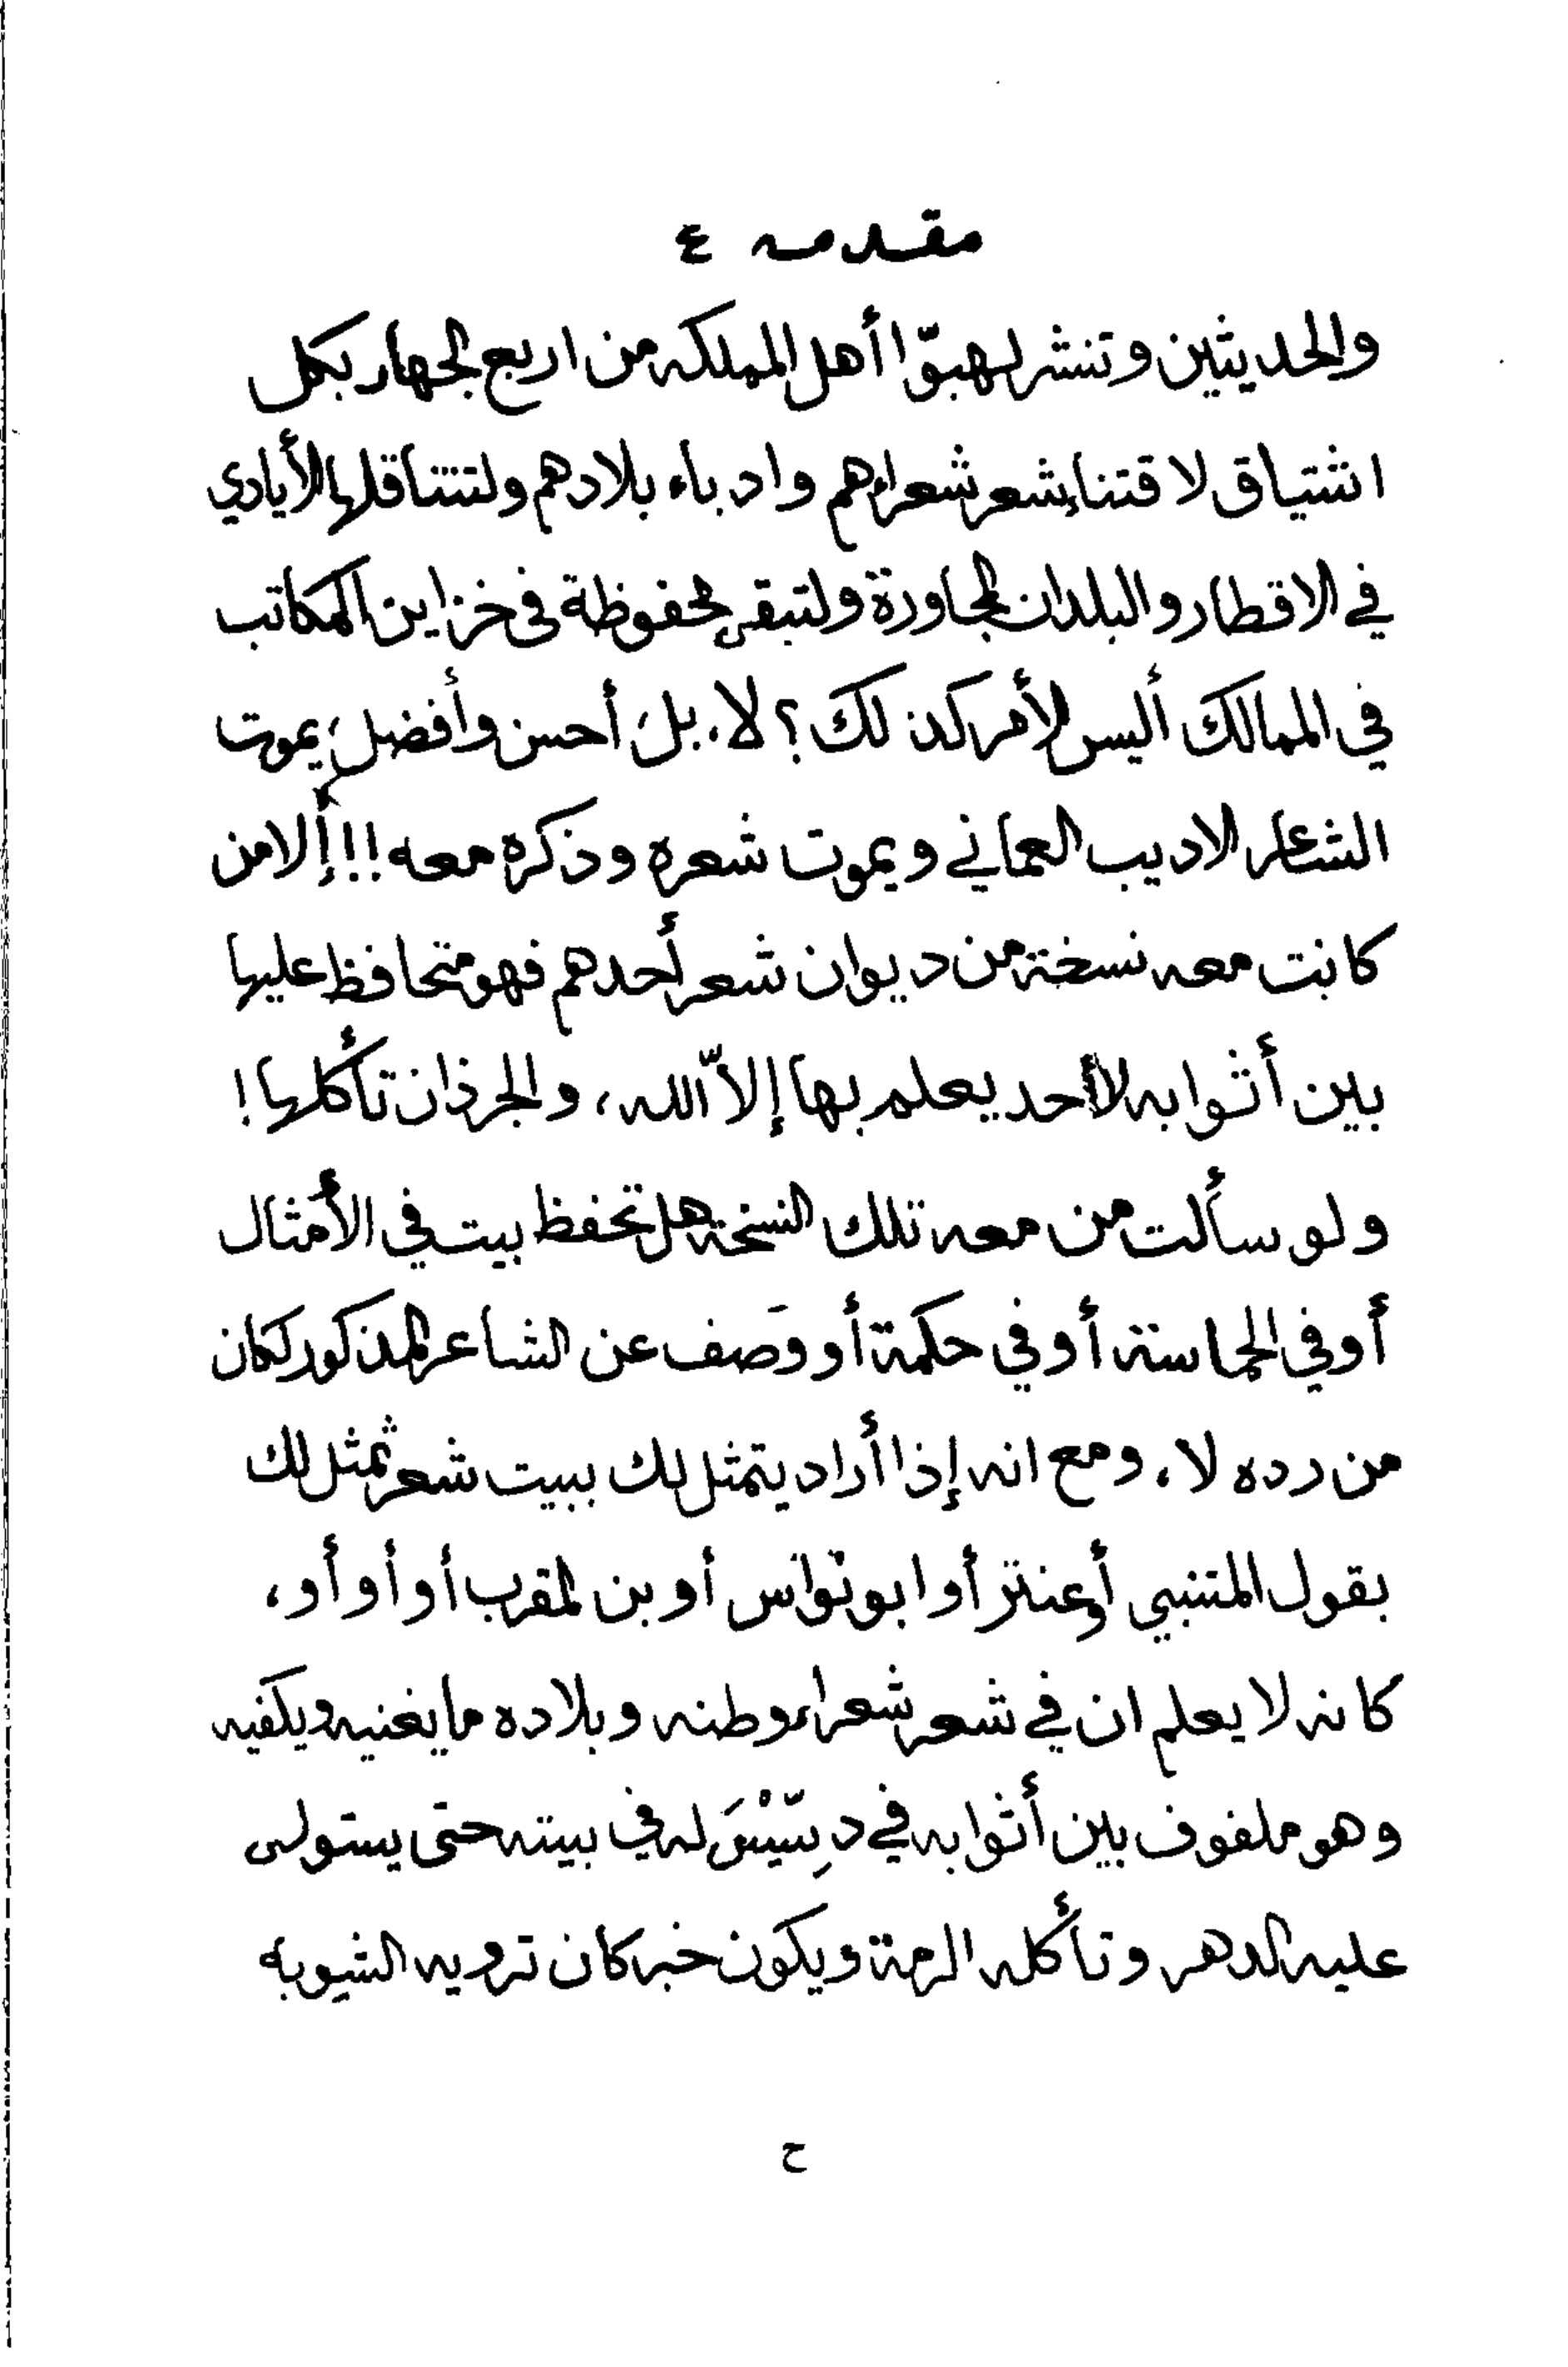 مقدمه ٤
والحديثين وتنشر لهبوّا أهل المملكه من اربع الجهار بكل
اشتياق لاقتناء شعر شعراءهم وادباء بلادهم ولتتناقلها الأيادي
في الاقطار والبلدان المجاورة ولتبقى محفوظة في خزاين المكاتب
في الممالك أليس الأمر كذلك ؟ لا، بل أحسن وأفضل، يموت
الشاعر الاديب العماني ويموت شعره وذكره معه !! إلا من
كانت معه نسخة من ديوان شعر أحدهم فهو متحافظ عليها
بين أثوابه لا أحد يعلم بها إلاّ الله، والجرذان تأكلها !
ولو سألت من معه تلك النسخة هل تحفظ بيت في الأمثال
أو في الحماسة أو في حكمة أو وَصف عن الشاعر المذكور لكان
من رده لا، ومع انه إذا أراد يتمثل لك ببيت شعر تمثل لك
بقول المتنبي أو عنتر أو ابو نواس أو بن المقرب أو أو أو،
كانه لا يعلم ان في شعر شعراء وطنه وبلاده ما يغنيه ويكفيه
وهو ملفوف بين أثوابه في دِسّيْسَ له في بيته حتى يستولى
عليه الدهر وتأكله الرمة ويكون خبر كان ترويه الشيوبه
ح